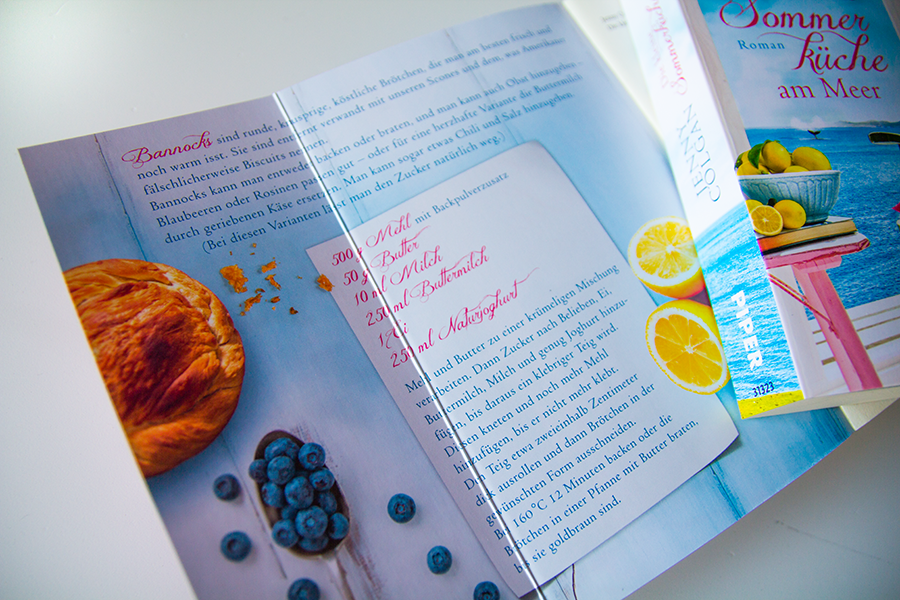 Bannocks sind runde, knusprige, köstliche Brötchen, die man am besten frisch und
noch warm isst. Sie sind entfernt verwandt mit unseren Scones und dem, was Amerikaner
fälschlicherweise Biscuits nennen.
Bannocks kann man entweder backen oder braten, und man kann auch Obst hinzugeben –
Blaubeeren oder Rosinen passen gut – oder für eine herzhafte Variante die Buttermilch
durch geriebenen Käse ersetzen. Man kann sogar etwas Chili und Salz hinzugeben.
(Bei diesen Varianten lässt man den Zucker natürlich weg.)
500 g Mehl mit Backpulverzusatz
50 g Butter
10 ml Milch
250 ml Buttermilch
1 Ei
250 ml Naturjoghurt
Mehl und Butter zu einer krümeligen Mischung
verarbeiten. Dann Zucker nach Belieben, Ei,
Buttermilch, Milch und genug Joghurt hinzu-
fügen, bis daraus ein klebriger Teig wird.
Diesen kneten und noch mehr Mehl
hinzufügen, bis er nicht mehr klebt.
Den Teig etwa zweieinhalb Zentimeter
dick ausrollen und dann Brötchen in der
gewünschten Form ausschneiden.
Bei 160°C 12 Minuten backen oder die
Brötchen in einer Pfanne mit Butter braten,
bis sie goldbraun sind.
JENNY
COLGAN
PIPER
31323
Sommer
küche
Roman
am Meer